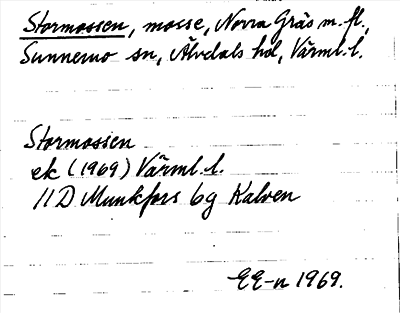 Stormossen, mosse, Norra Gräs m. fl.,
Sunnemo sn, Älvdals hd, Värml. l.
Stormossen
ek (1969) Värml. l.
11 D Munkfors 6g Kalven
EE-n 1969.